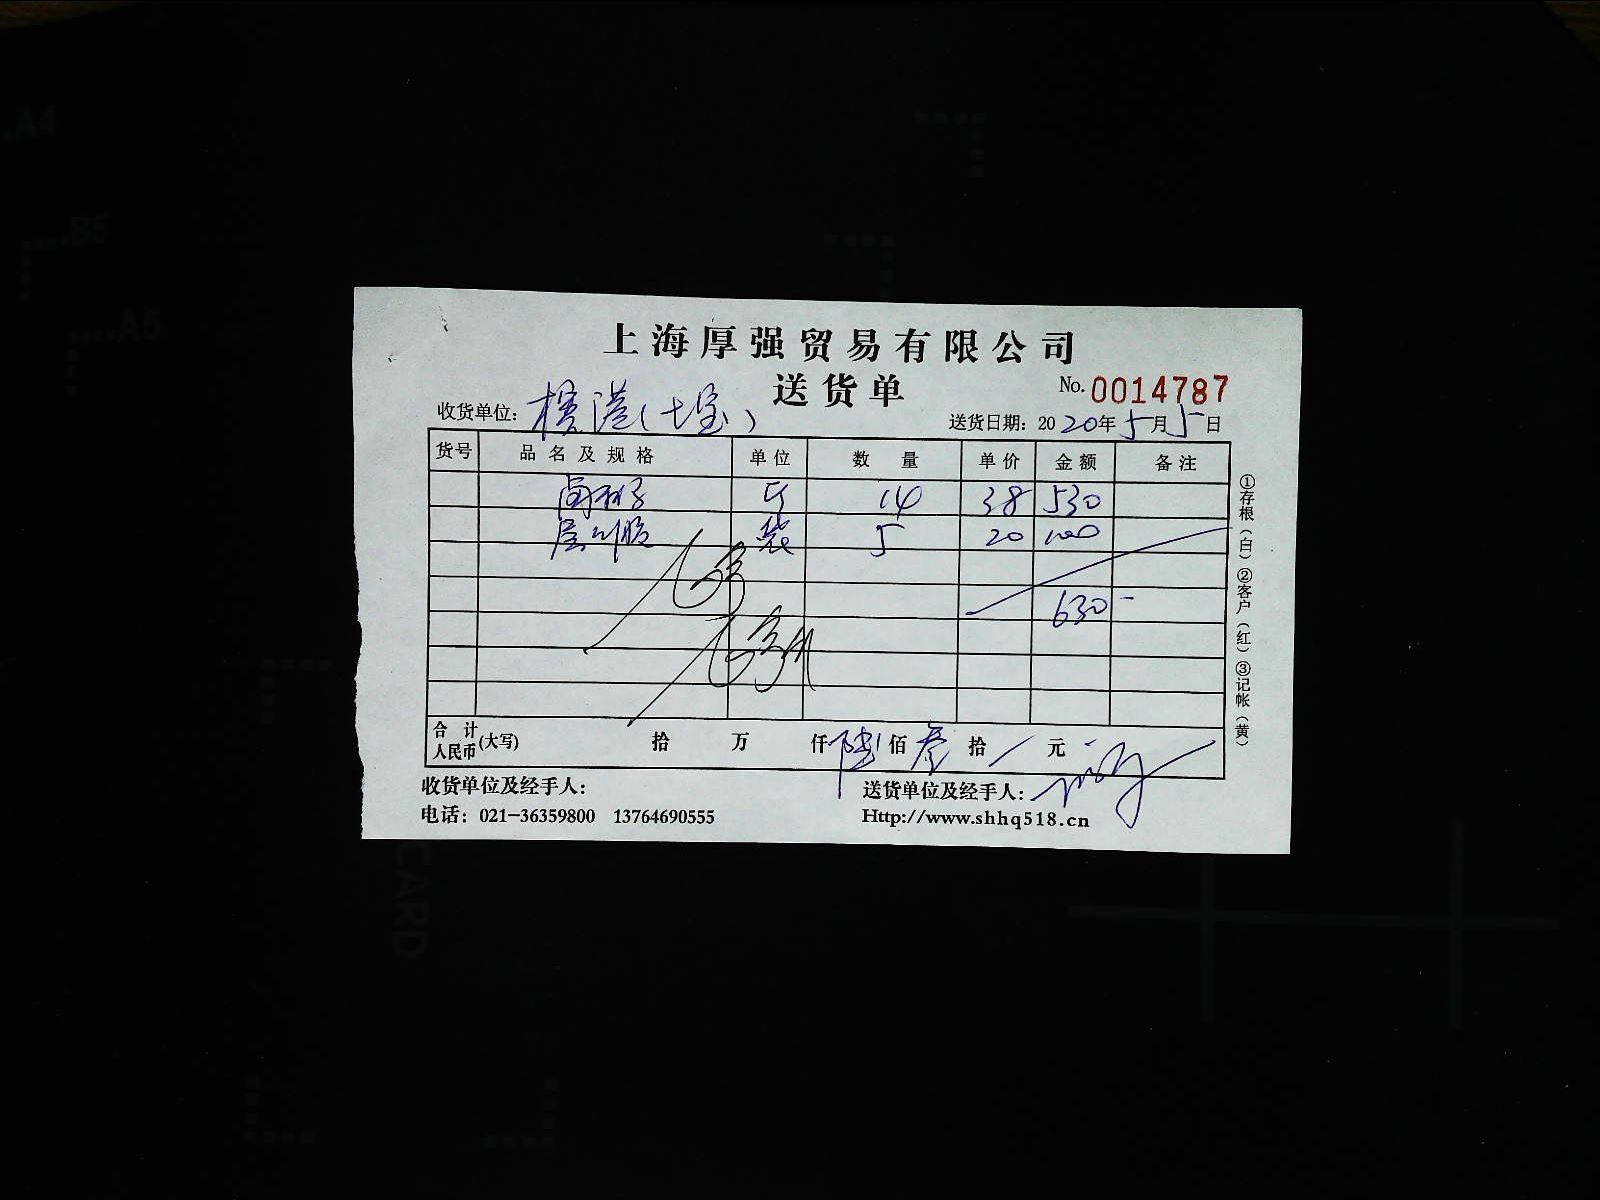 上海厚强贸易有限公司
送货单
No. 0014787
收货单位: 横港(七宝)
送货日期: 2020年5月5日
货号 品名及规格 单位 数量 单价 金额 备注
斤 14 38 530
袋 5 20 100
630-
合计人民币(大写) 拾 万 仟 陆 佰 叁 拾 / 元
收货单位及经手人:
送货单位及经手人:
电话: 021-36359800 13764690555
Http://www.shhq518.cn
①存根(白)②客户(红)③记帐(黄)
A4
B5
A5
CARD